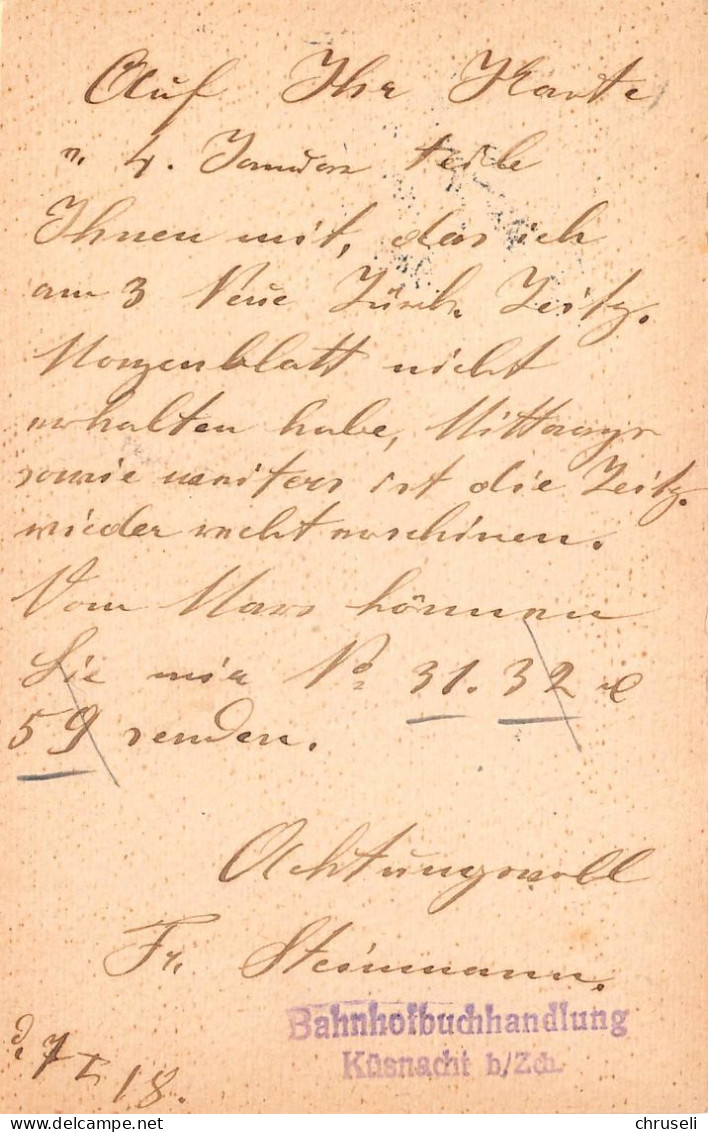 Auf Ihr Karte
v. 4. Januar teile
Ihnen mit, das ich
am 3 Neue Zürch. Zeitg.
Morgenblatt nicht
erhalten habe, Mittags
sowie weiters ist die Zeitg.
wieder recht erschinen.
Vom Mars können
Sie mir No 31. 32 &
59 senden.
Achtungsvoll
Fr. Steinmann.
Bahnhofbuchhandlung
Küsnacht b/Zch.
d. 7 I 18.
chruseli